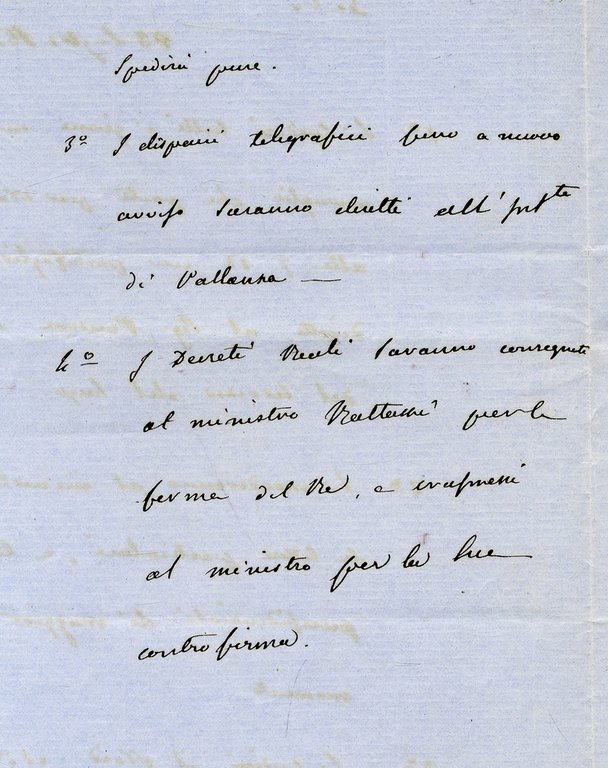 Spedirsi pure.
3º I dispacci telegrafici fino a nuovo
avviso saranno diretti all'
di Pallanza —
4º I Decreti Reali saranno consegnati
al ministro Rattazzi per la
firma del Re, e trasmessi
al ministro per la sua
controfirma.